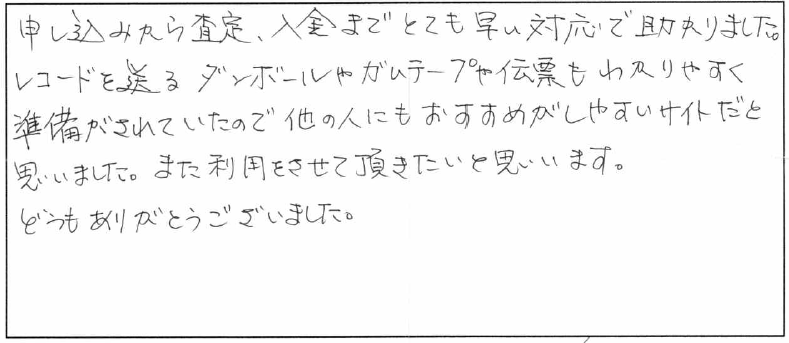 申し込みから査定、入金までとても早い対応で助かりました。
レコードを送るダンボールやガムテープや伝票もわかりやすく
準備がされていたので他の人にもおすすめがしやすいサイトだと
思いました。また利用をさせて頂きたいと思いいます。
どうもありがとうございました。